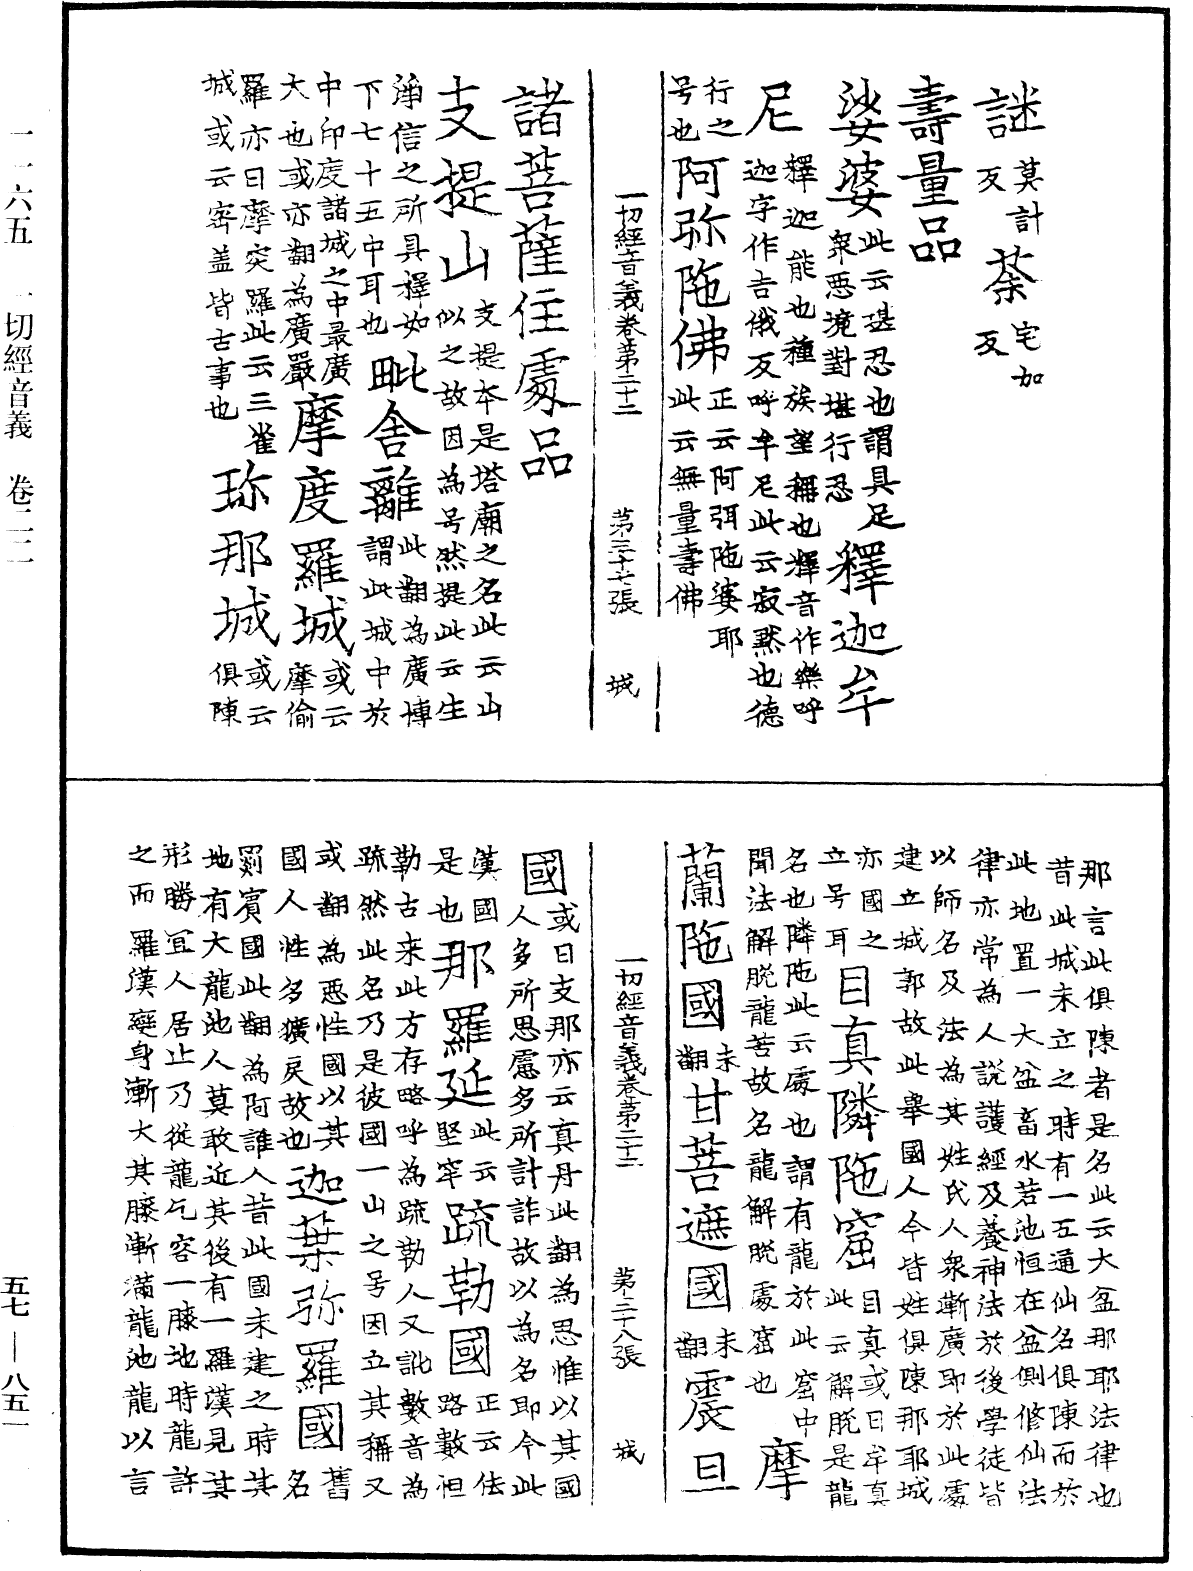 一一六五　一切經音義　卷二二
謎莫計反茶宅加反
壽量品
娑婆此云堪忍也謂具足衆惡境對堪行忍釋迦牟
尼釋迦能也種族望稱也釋音作樂呼迦字作吉俄反呼牟尼此云寂黙也德
行之号也阿弥陁佛正云阿弭陁婆耶此云無量壽佛
一切經音義卷第二十二　第三十七張　城
諸菩薩住處品
支提山支提本是塔廟之名此云山以之故因為号然提此云生
淨信之所具釋如下七十五中耳也毗舍離此翻為廣博謂此城中於
中印度諸城之中最廣大也或亦翻為廣嚴摩度羅城或云摩偷
羅亦曰摩突羅此云三雀城或云密盖皆古事也珎那城或云俱陳
那言此俱陳者是名此云大盆那耶法律也
昔此城未立之時有一五通仙名俱陳而於
此地置一大盆畜水若池恒在盆側修仙法
律亦常為人說護經及養神法於後學徒皆
以師名及法為其姓氏人衆漸廣即於此處
建立城郭故此舉國人今皆姓俱陳那耶城
亦國之立号耳目真隣陁窟目真或曰牟真此云解脫是龍
名也隣陁此云處也謂有龍於此窟中聞法解脫龍苦故名龍解脫處窟也摩
蘭陁國未翻甘菩遮國未翻震旦
一切經音義卷第二十二　第三十八張　城
國或曰支那亦云真丹此翻為思惟以其國人多所思慮多所計詐故以為名即今此
漢國是也那羅延此云堅牢疏勒國正云佉路數怛
勒古来此方存略呼為疏勒人又訛數音為疏然此名乃是彼國一山之号因立其稱又
或翻為惡性國以其國人性多獷戾故也迦葉弥羅國舊名
罽賓國此翻為阿誰人昔此國未建之時其
地有大龍池人莫敢近其後有一羅漢見其
形勝宜人居止乃從龍乞容一膝地時龍許
之而羅漢變身漸大其膝漸滿龍池龍以言
五七—八五一